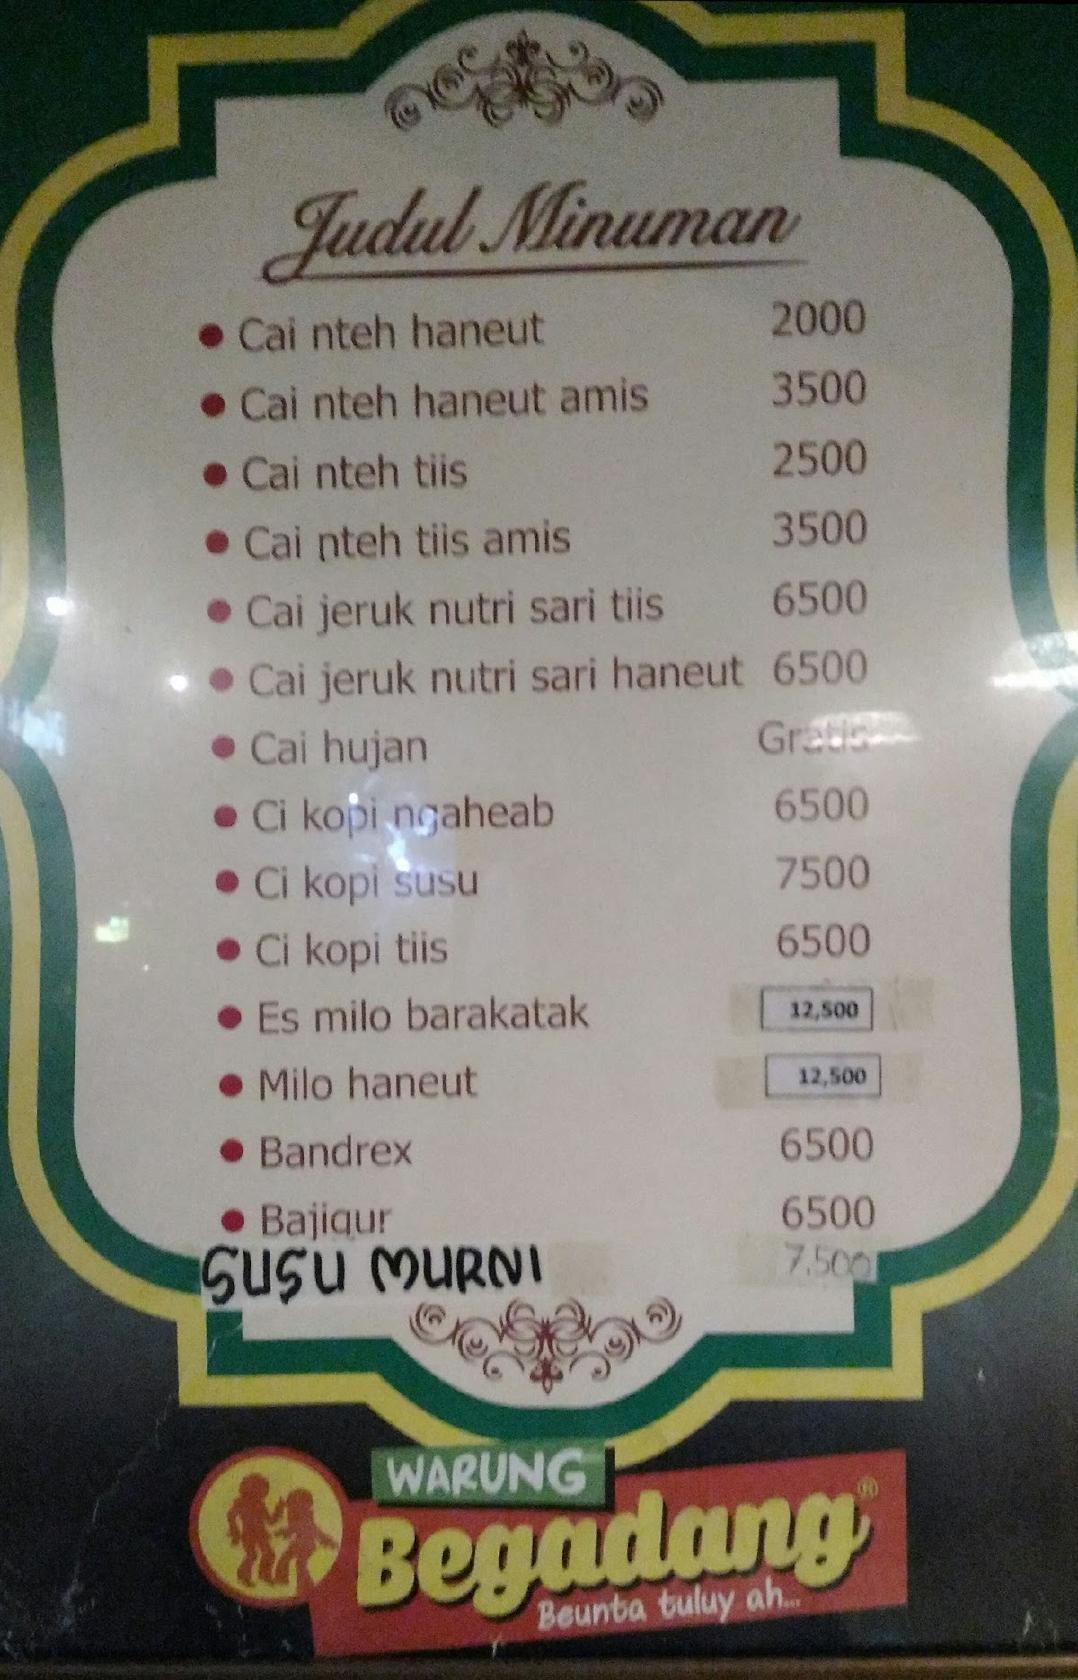 Judul Minuman
• Cai nteh haneut 2000
• Cai nteh haneut amis 3500
• Cai nteh tiis 2500
• Cai nteh tiis amis 3500
• Cai jeruk nutri sari tiis 6500
• Cai jeruk nutri sari haneut 6500
• Cai hujan Gratis
• Ci kopi ngaheab 6500
• Ci kopi susu 7500
• Ci kopi tiis 6500
• Es milo barakatak 12,500
• Milo haneut 12,500
• Bandrex 6500
• Bajigur 6500
SUSU MURNI 7.500
WARUNG
Begadang®
Beunta tuluy ah...